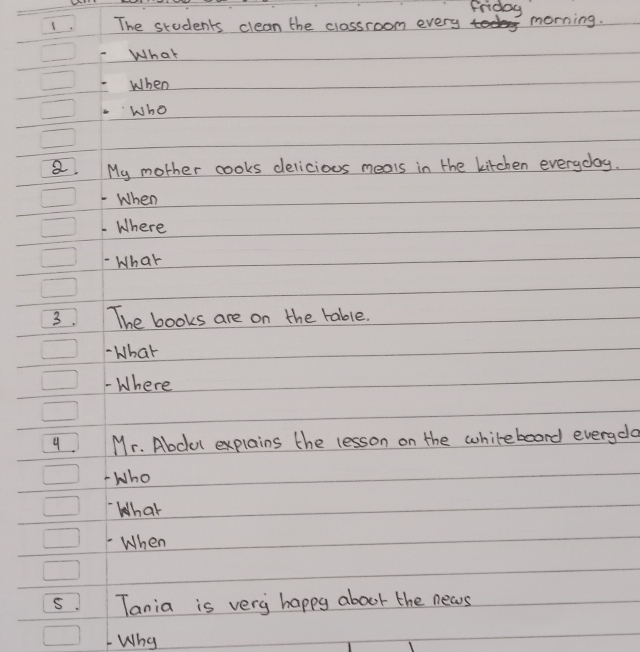 friday
1. The students clean the classroom every today morning.
- What
- When
- Who
2. My mother cooks delicious meals in the kitchen everyday.
- When
- Where
- What
3. The books are on the table.
- What
- Where
4. Mr. Abdul explains the lesson on the whiteboard everyda
- Who
- What
- When
5. Tania is very happy about the news
- Why